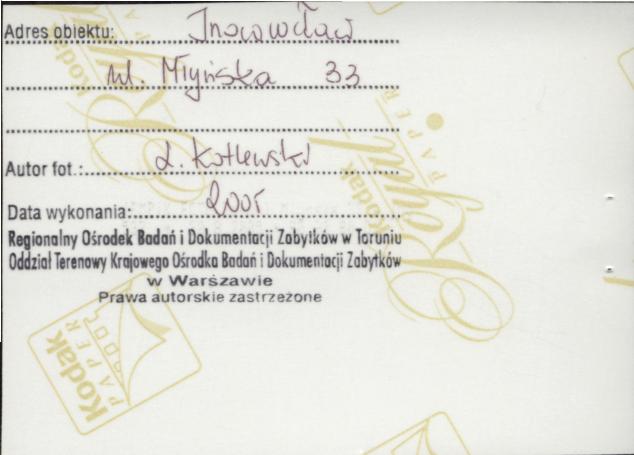 Adres obiektu: Inowrocław
ul. Młyńska 33
Autor fot.: L. Kotlewski
Data wykonania: 2005
Regionalny Ośrodek Badań i Dokumentacji Zabytków w Toruniu
Oddział Terenowy Krajowego Ośrodka Badań i Dokumentacji Zabytków
w Warszawie
Prawa autorskie zastrzeżone
Kodak
Royal
PAPER
Kodak
Royal
PAPER
Kodak
PAPER